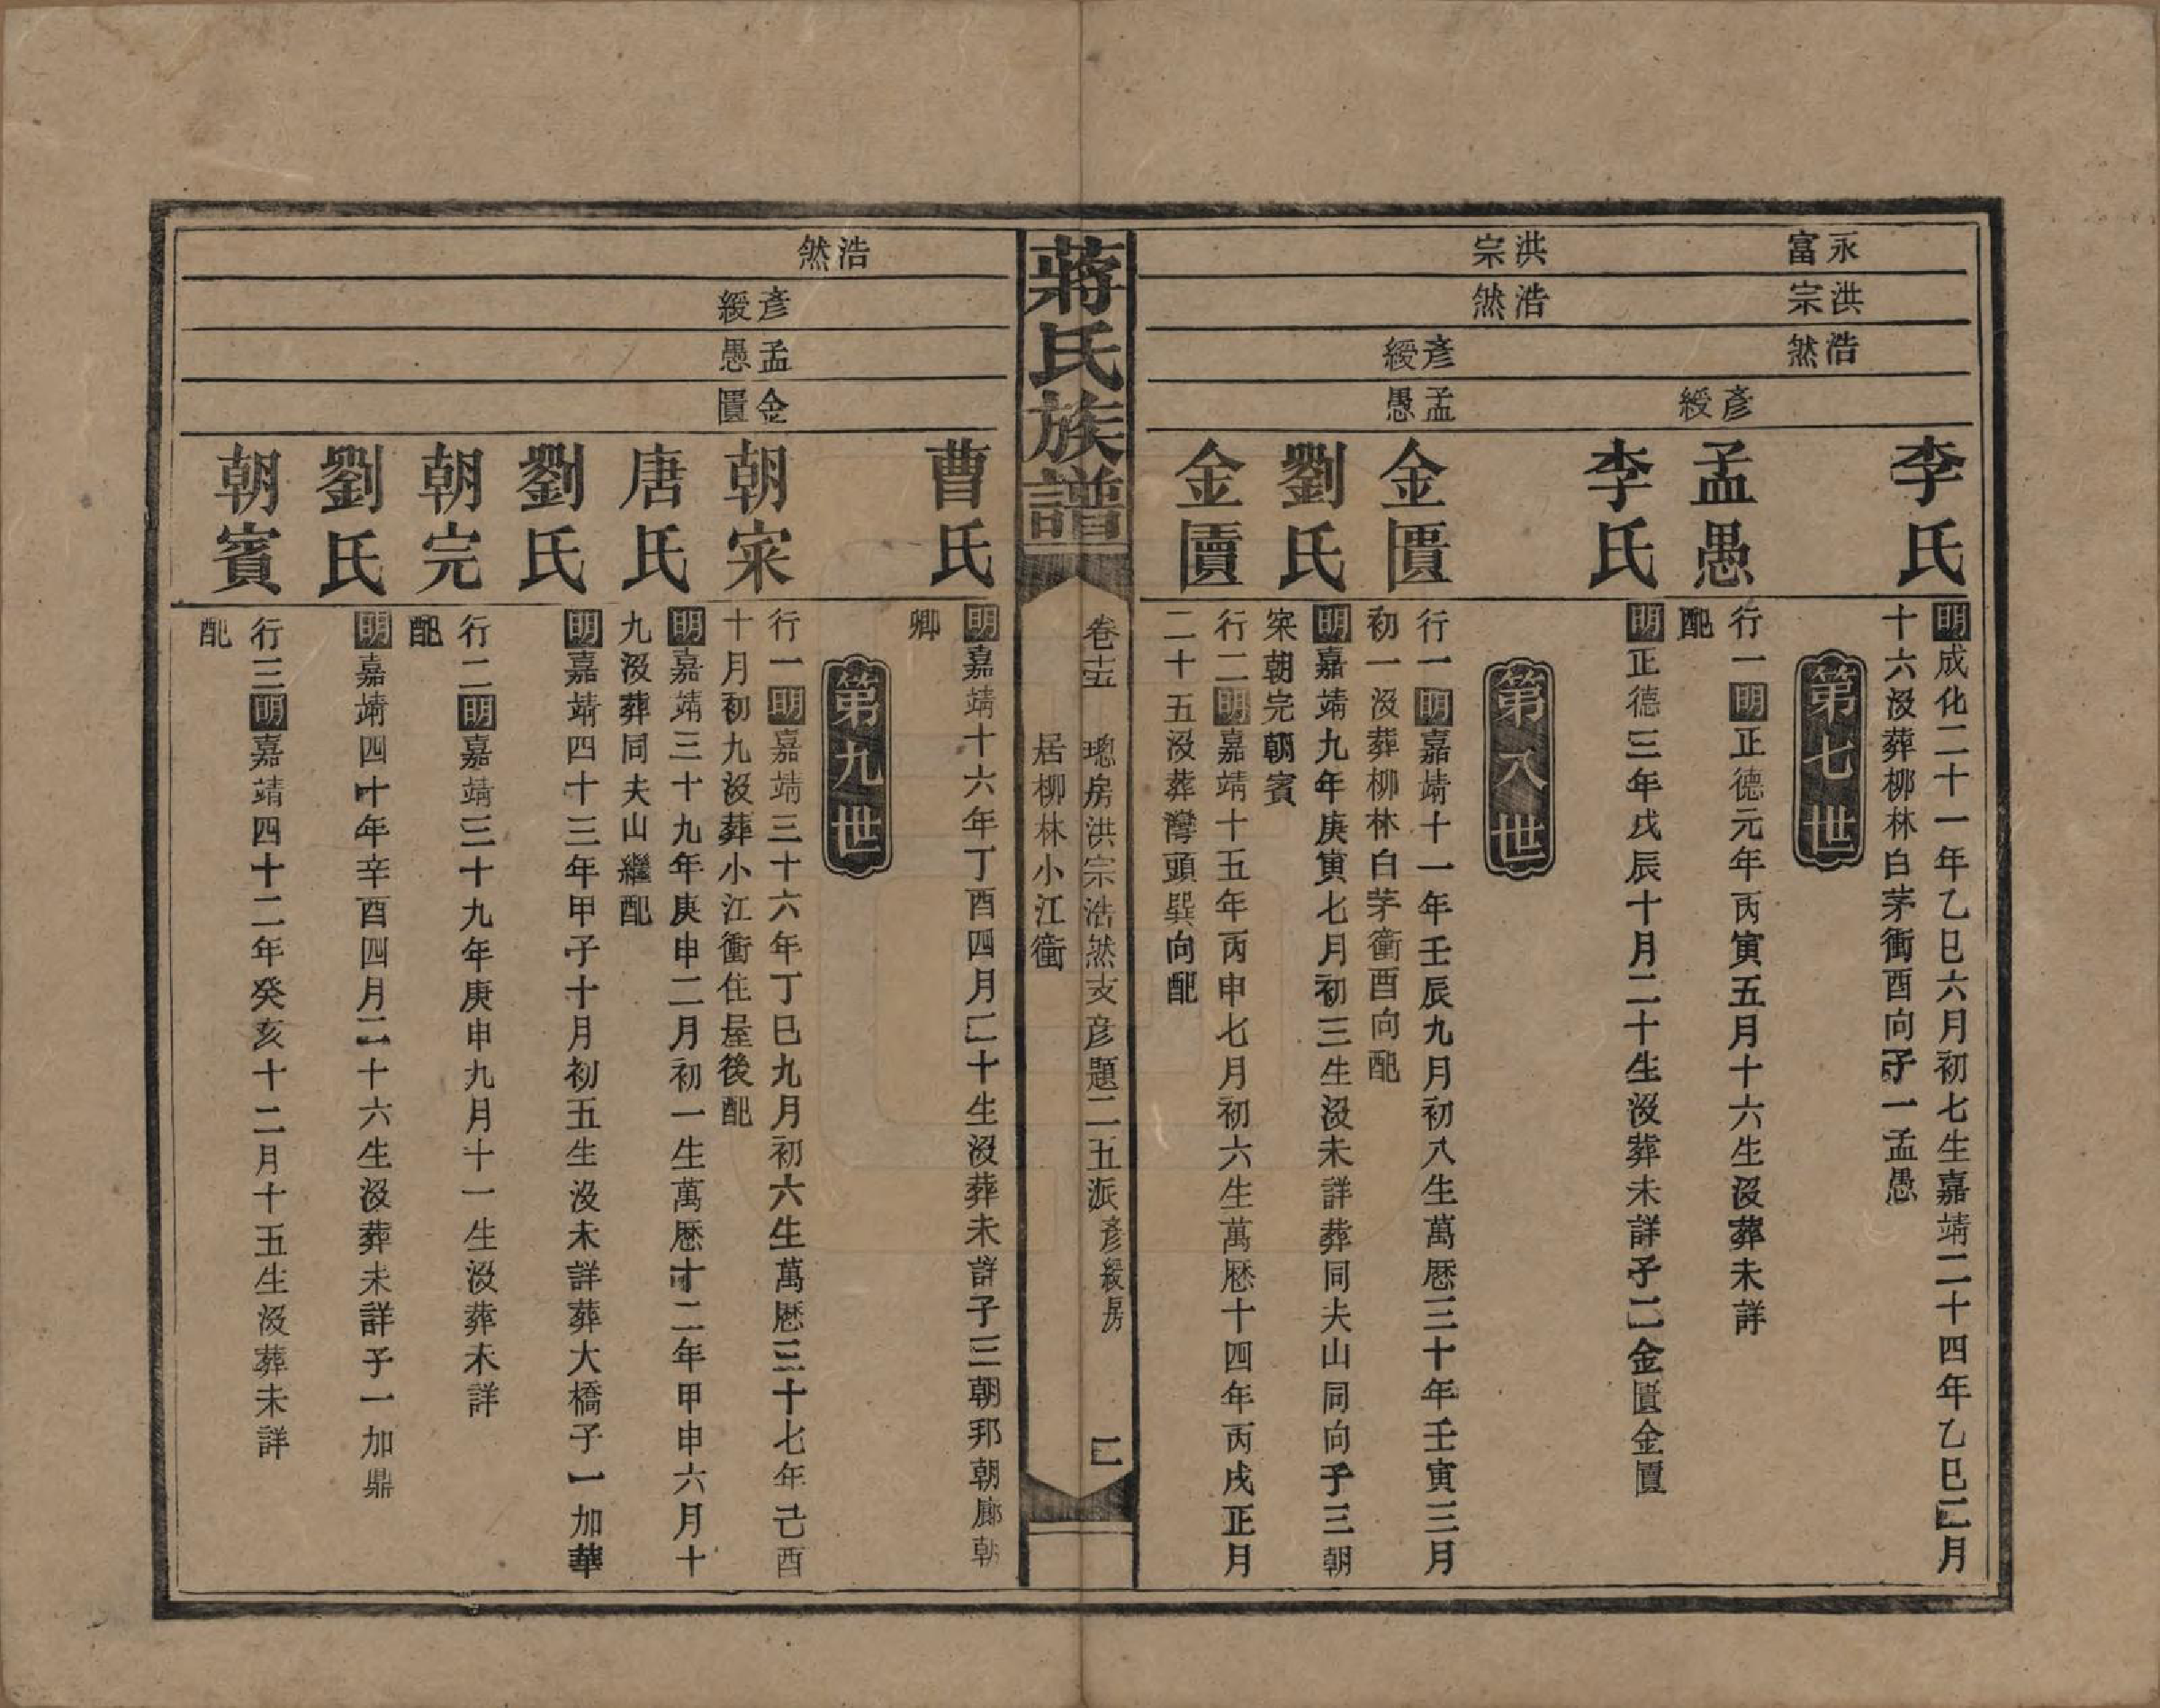 永富
洪宗
浩然
彥綬
洪宗
浩然
彥綬
孟愚
李氏
明成化二十一年乙巳六月初七生嘉靖二十四年乙巳二月
十六沒葬柳林白茅衝酉向子一孟愚
第七世
孟愚
行一明正德元年丙寅五月十六生沒葬未詳
配
李氏
明正德三年戊辰十月二十生沒葬未詳子二金匱金匵
第八世
金匱
行一明嘉靖十一年壬辰九月初八生萬厯三十年壬寅三月
初一沒葬柳林白茅衝酉向配
劉氏
明嘉靖九年庚寅七月初三生沒未詳葬同夫山同向子三朝
宷朝完朝賓
金匵
行二明嘉靖十五年丙申七月初六生萬厯十四年丙戌正月
二十五沒葬灣頭巽向配
蔣氏族譜
卷十五
璁房洪宗浩然支彥題二五派彥綬房
居柳林小江衝
二
浩然
彥綬
孟愚
金匱
曹氏
明嘉靖十六年丁酉四月二十生沒葬未詳子三朝邦朝廊朝
卿
第九世
朝宷
行一明嘉靖三十六年丁巳九月初六生萬厯三十七年己酉
十月初九沒葬小江衝住屋後配
唐氏
明嘉靖三十九年庚申二月初一生萬厯十二年甲申六月十
九沒葬同夫山繼配
劉氏
明嘉靖四十三年甲子十月初五生沒未詳葬大橋子一加華
朝完
行二明嘉靖三十九年庚申九月十一生沒葬未詳
配
劉氏
明嘉靖四十年辛酉四月二十六生沒葬未詳子一加鼎
朝賓
行三明嘉靖四十二年癸亥十二月十五生沒葬未詳
配